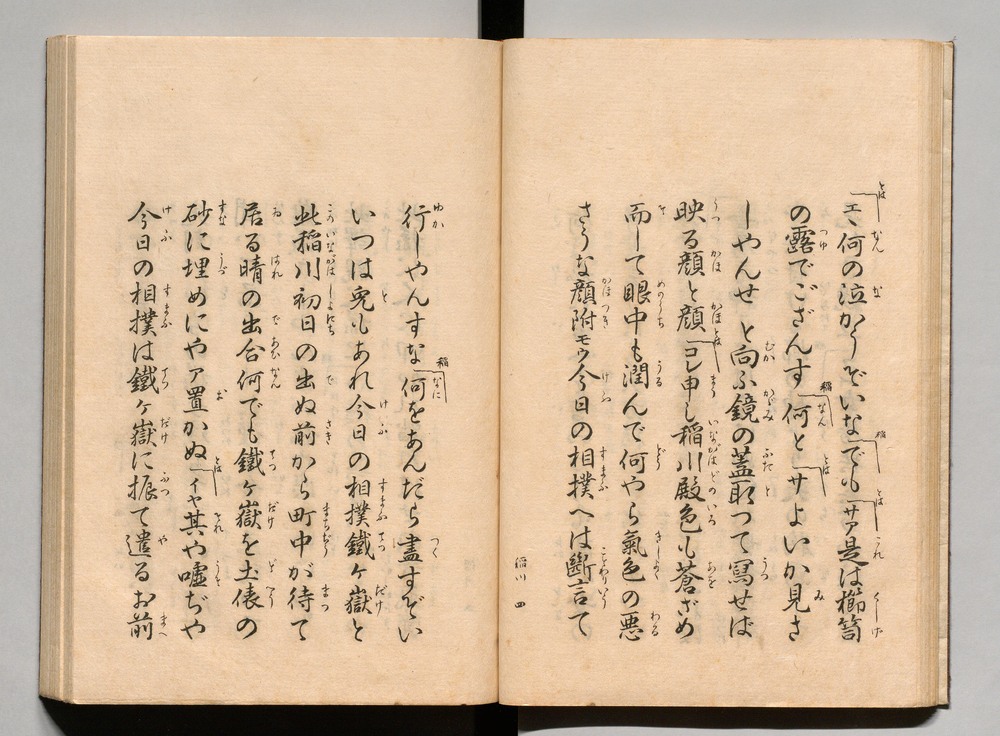 エヽ何の泣かうぞいなでも サア是は櫛笥
の露でござんす 何と サよいか見さ
しやんせと向ふ鏡の蓋取つて写せば
映る顔と顔 コレ申し稲川殿色も蒼ざめ
而して眼中も潤んで何やら氣色の悪
さうな顔附モウ今日の相撲へは斷言て
稲川 四
行しやんすな 何をあんだら盡すぞい
いつは兎もあれ今日の相撲鐵ヶ嶽と
此稲川初日の出ぬ前から町中が待て
居る晴の出合何でも鐵ヶ嶽を土俵の
砂に埋めにやア置かぬ イヤ其や嘘ぢや
今日の相撲は鐵ヶ嶽に振て遣るお前